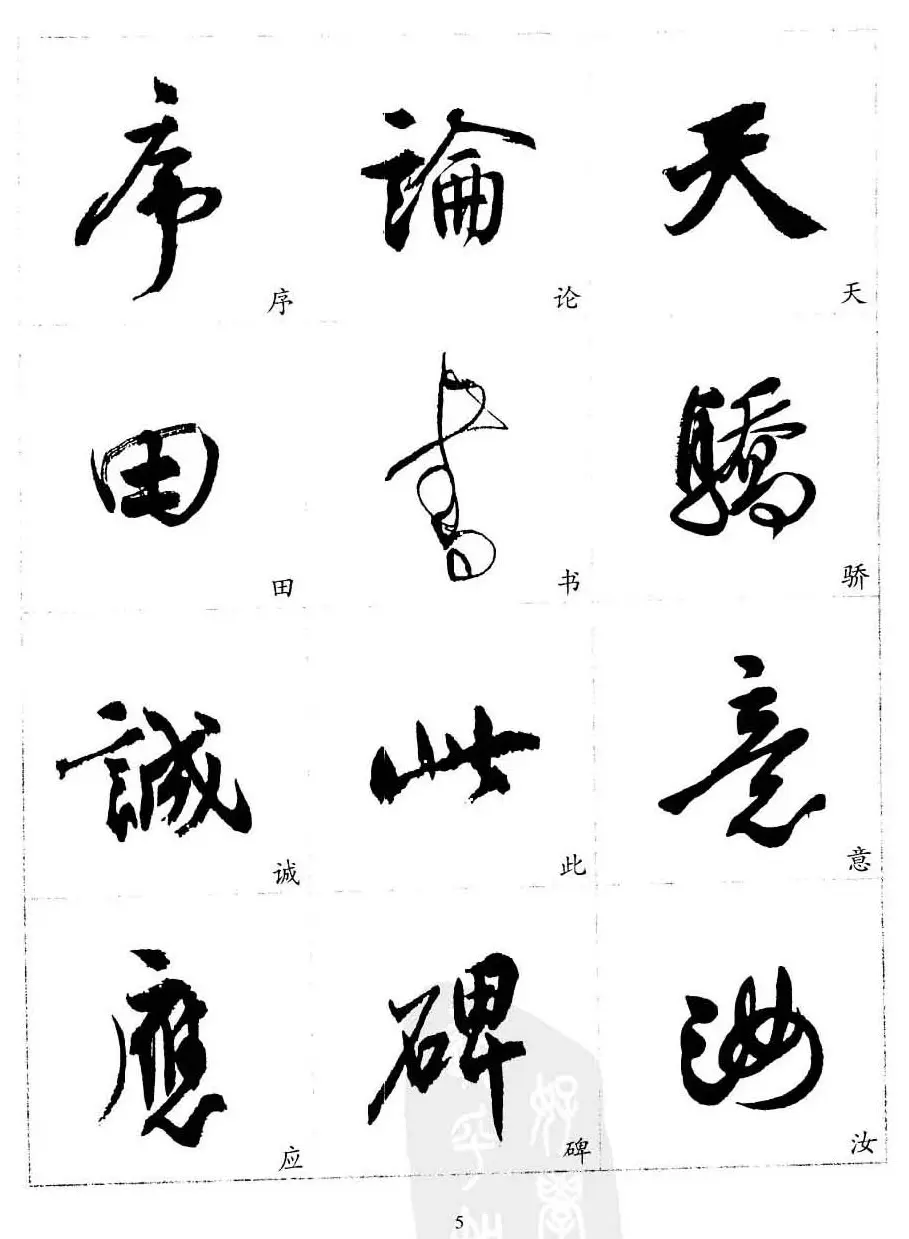 序 論 天
序 论 天
田 書 驕
田 书 骄
誠 此 意
诚 此 意
應 碑 汝
应 碑 汝
5